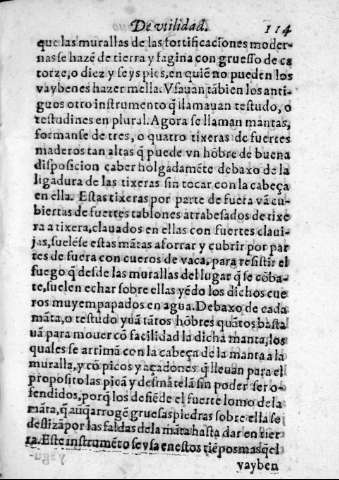 De vtilidad. 114
que las murallas de las fortificaciones moder-
nas se hazē de tierra y fagina con gruesso de ca
torze, o diez y seys pies, en quiē no pueden los
vaybenes hazer mella. Vsauan tābien los anti-
guos otro instrumento q̄ llamauan testudo, o
testudines en plural. Agora se llaman mantas,
formanse de tres, o quatro tixeras de fuertes
maderos tan altas q̄ puede vn hōbre de buena
disposicion caber holgadamēte debaxo de la
ligadura de las tixeras sin tocar con la cabeça
en ella. Estas tixeras por parte de fuera vā cu-
biertas de fuertes tablones atrabesados de tixe
ra a tixera, clauados en ellas con fuertes claui-
jas, suelēse estas mātas aforrar y cubrir por par
tes de fuera con cueros de vaca, para resistir el
fuego q̄ desde las murallas del lugar q̄ se cōba-
te, suelen echar sobre ellas yēdo los dichos cue
ros muy empapados en agua. Debaxo de cada
māta, o testudo yuā tātos hōbres quātos basta
uā para mouer cō facilidad la dicha manta, los
quales se arrimā con la cabeça de la manta a la
muralla, y cō picos y açadones q̄ lleuan para el
proposito las picā y desmātelā sin poder ser o-
fendidos, porq̄ los defiēde el fuerte lomo de la
māta, q̄ auq̄ arrogē gruesas piedras sobre ella se
deslizā por las faldas dela māta hasta dar en tier
ra. Este instrumēto se vsa en estos tiēpos mas q̄ el
vayben